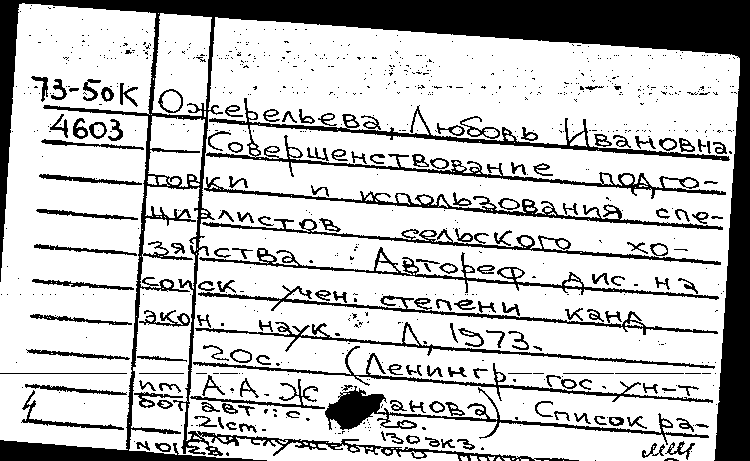 73-50К Ожерельева, Любовь Ивановна.
4603 Совершенствование подго-
товки и использования спе-
циалистов сельского хо-
зяйства. Автореф. дис. на
соиск. учен. степени канд
экон. наук. Л., 1973.
20с. (Ленингр. гос. ун-т
им. А.А. Ж анова). Список ра-
бот авт.: с. 20.
21ст. 130экз.
Для служебного